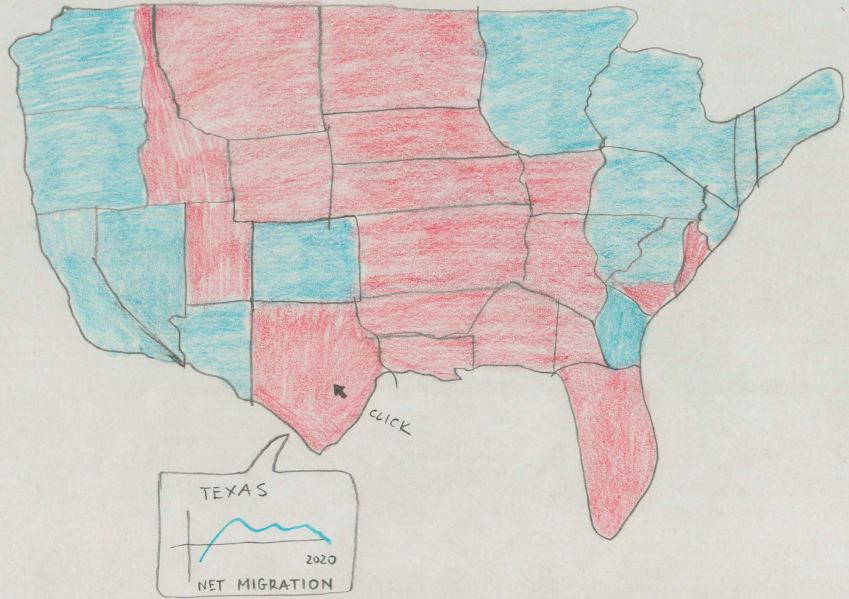 CLICK
TEXAS
2020
NET MIGRATION